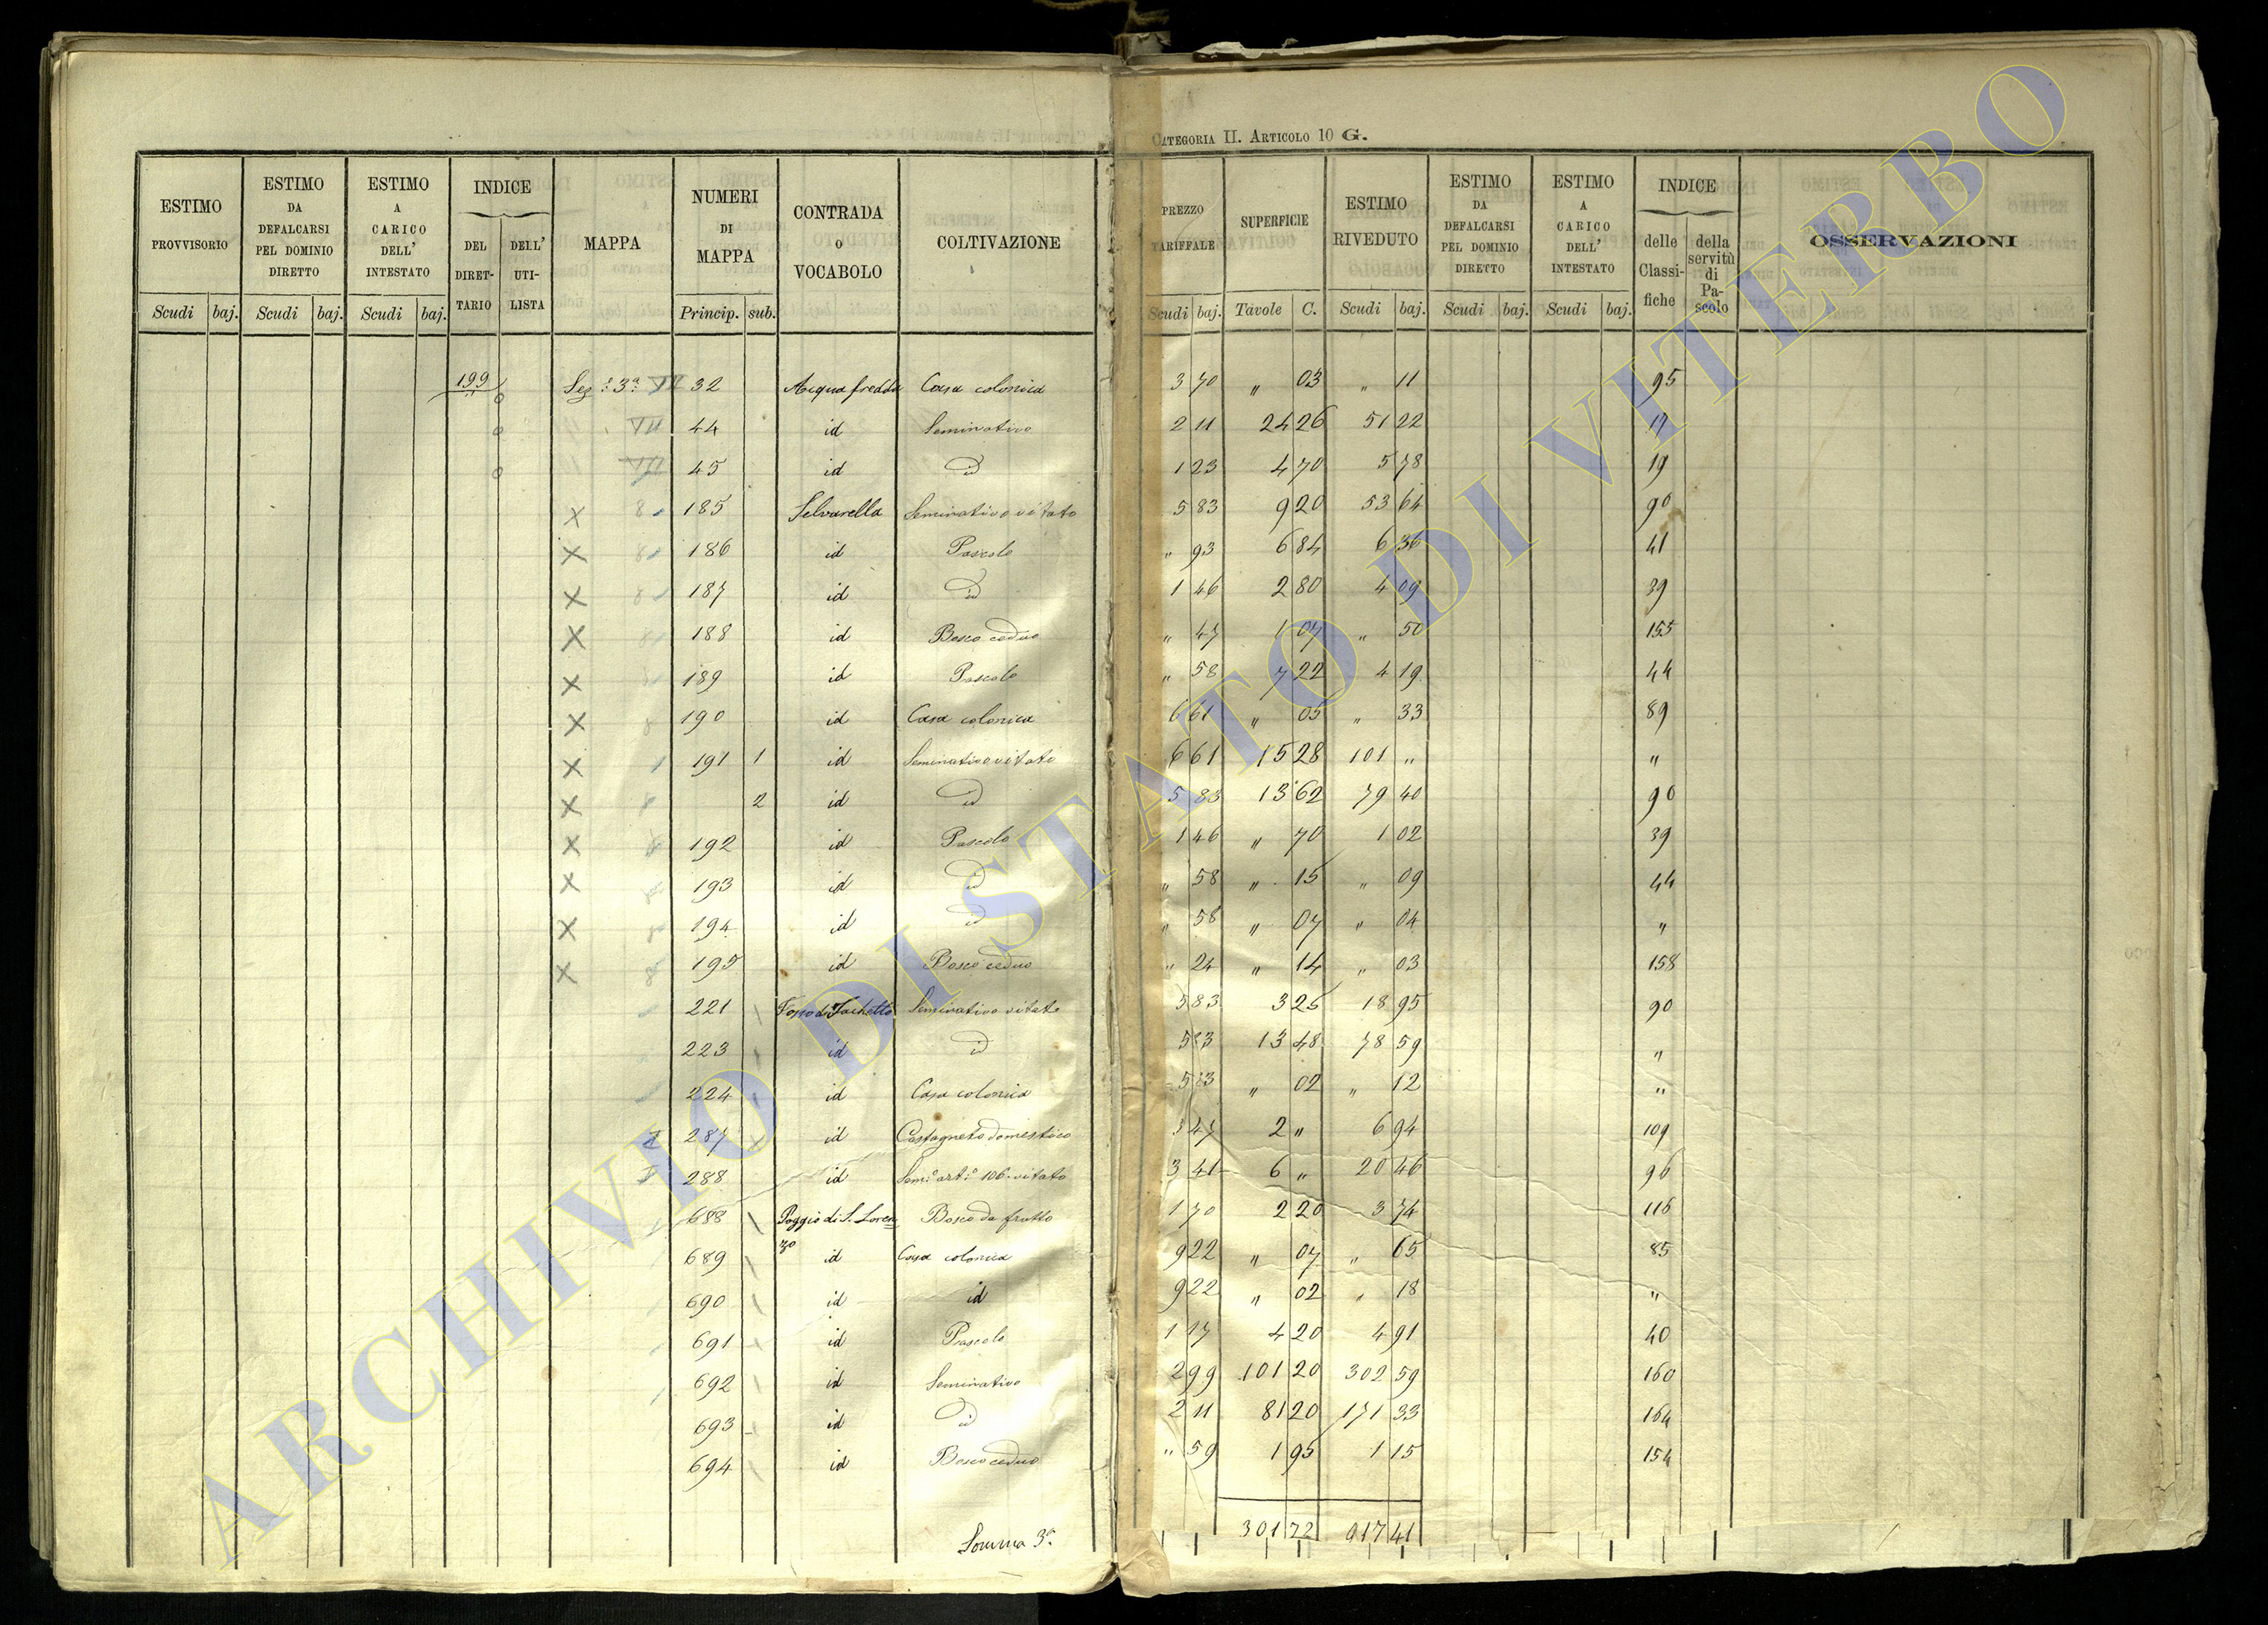 CATEGORIA II. ARTICOLO 10 G.
ESTIMO PROVVISORIO Scudi baj.
ESTIMO DA DEFALCARSI PEL DOMINIO DIRETTO Scudi baj.
ESTIMO A CARICO DELL' INTESTATO Scudi baj.
INDICE DEL DIRETTARIO DELL' UTILISTA
MAPPA
NUMERI DI MAPPA Princip. sub.
CONTRADA O VOCABOLO
COLTIVAZIONE
PREZZO TARIFFALE Scudi baj.
SUPERFICIE Tavole C.
ESTIMO RIVEDUTO Scudi baj.
ESTIMO DA DEFALCARSI PEL DOMINIO DIRETTO Scudi baj.
ESTIMO A CARICO DELL' INTESTATO Scudi baj.
INDICE delle Classifiche della servitù di Pascolo
OSSERVAZIONI
199 Sez: 3ª 32 Acqua fredda Casa colonica 3 70 " 03 " 11 95
44 id Seminativo 2 11 24 26 51 22 17
45 id id 1 23 4 70 5 78 19
X 185 Selvarella Seminativo vitato 5 83 9 20 53 64 90
X 186 id Pascolo " 93 6 84 6 36 41
X 187 id id 1 46 2 80 4 09 39
X 188 id Bosco ceduo " 47 1 07 " 50 155
X 189 id Pascolo " 58 7 22 4 19 44
X 190 id Casa colonica 6 61 " 05 " 33 89
X 191 1 id Seminativo vitato 6 61 15 28 101 " "
X 2 id id 5 83 13 62 79 40 90
X 192 id Pascolo 1 46 " 70 1 02 39
X 193 id id " 58 " 15 " 09 44
X 194 id id " 58 " 07 " 04 "
X 195 id Bosco ceduo " 24 " 14 " 03 158
221 Fosso di Sachetto Seminativo vitato 5 83 3 25 18 95 90
223 id id 5 83 13 48 78 59 "
224 id Casa colonica 5 83 " 02 " 12 "
287 id Castagneto domestico 3 47 2 " 6 94 109
288 id Sem: art: 106. vitato 3 41 6 " 20 46 96
688 Poggio di S. Loren= Bosco da frutto 1 70 2 20 3 74 116
689 zo id Casa colonica 9 22 " 07 " 65 85
690 id id 9 22 " 02 " 18 "
691 id Pascolo 1 17 4 20 4 91 40
692 id Seminativo 2 99 101 20 302 59 160
693 id id 2 11 81 20 171 33 164
694 id Bosco ceduo " 59 1 95 1 15 154
Somma 3ª 301 72 917 41
ARCHIVIO DI STATO DI VITERBO